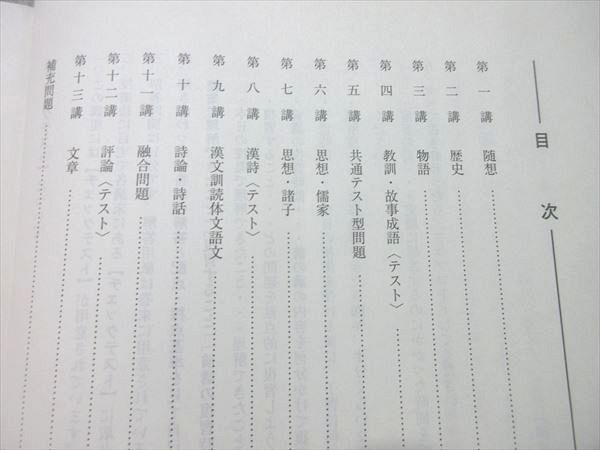 目次
第一講 随想
第二講 歴史
第三講 物語
第四講 教訓・故事成語〈テスト〉
第五講 共通テスト型問題
第六講 思想・儒家
第七講 思想・諸子
第八講 漢詩〈テスト〉
第九講 漢文訓読体文語文
第十講 詩論・詩話
第十一講 融合問題
第十二講 評論〈テスト〉
第十三講 文章
補充問題